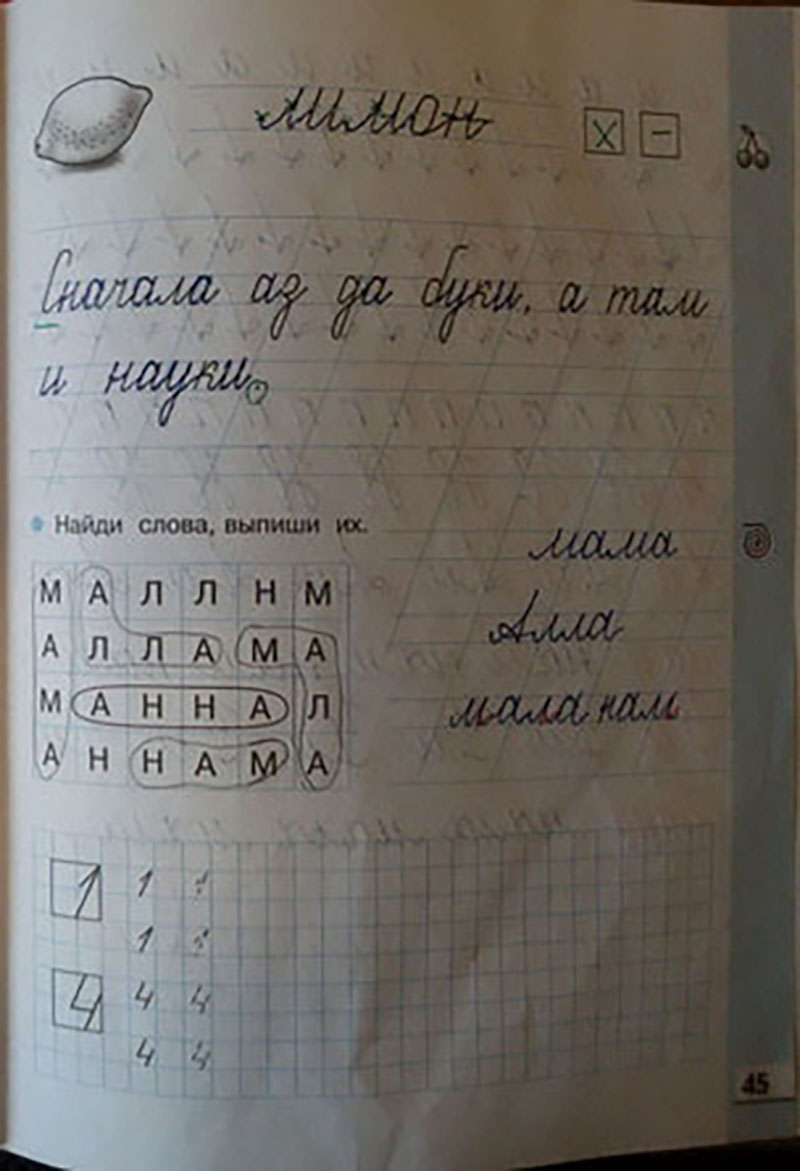 лимон
х –
Сначала аз да буки, а там
и науки.
Найди слова, выпиши их.
мама
Алла
мала нам
М А Л Л Н М
А Л Л А М А
М А Н Н А Л
А Н Н А М А
1 1 1
1 1
4 4 4
4 4
45